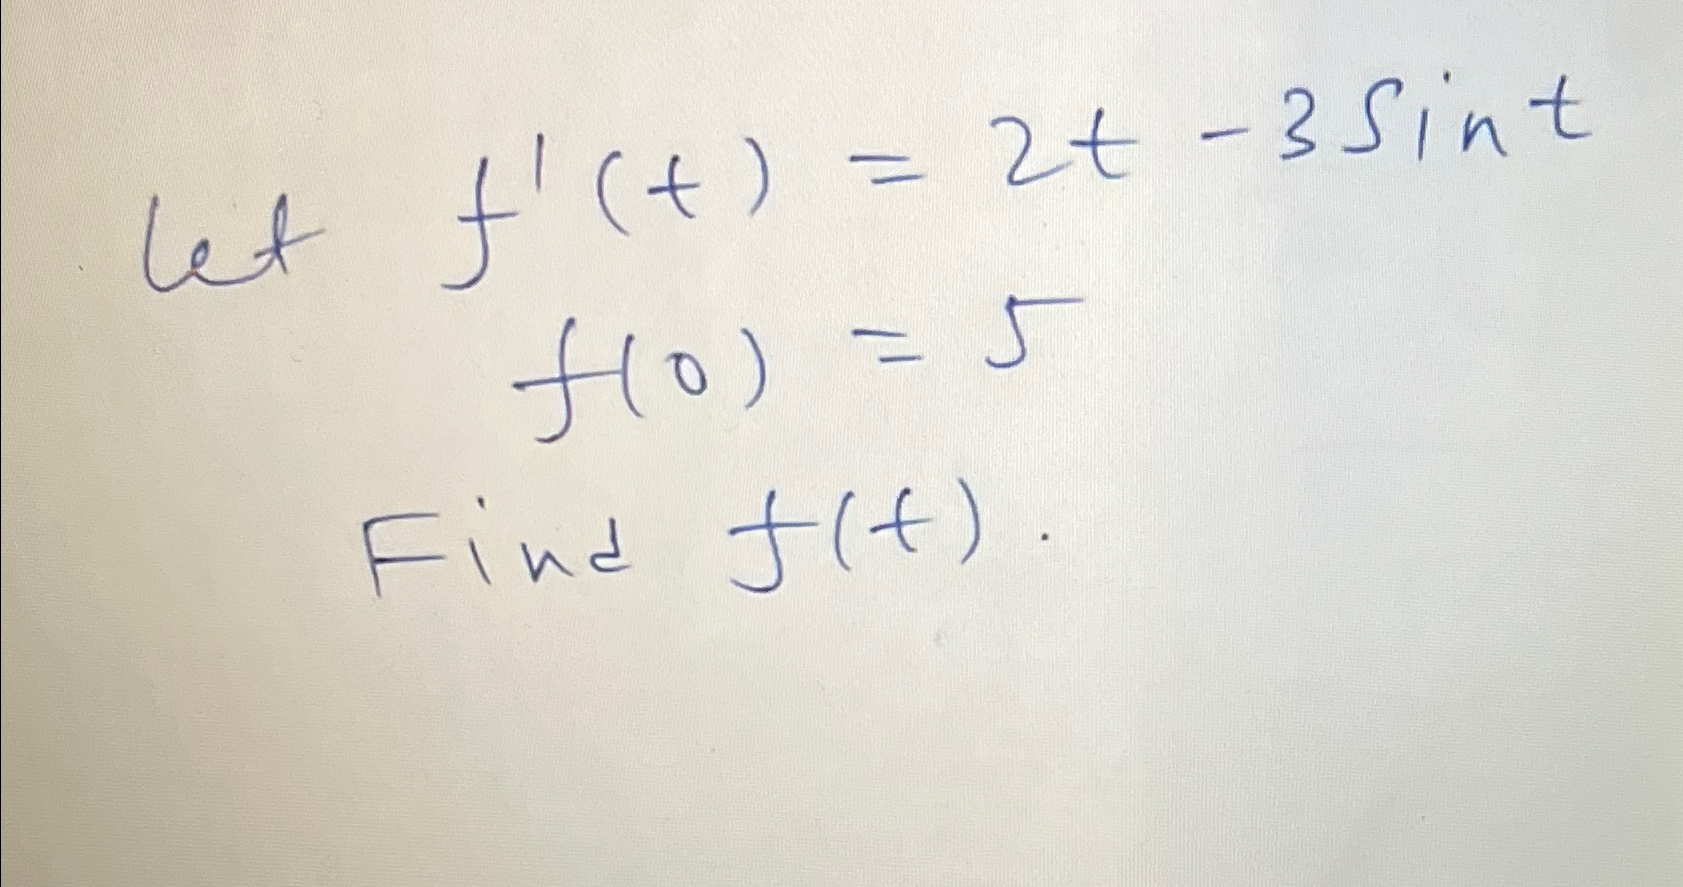 let f'(t) = 2t - 3 Sint
f(0) = 5
Find f(t).